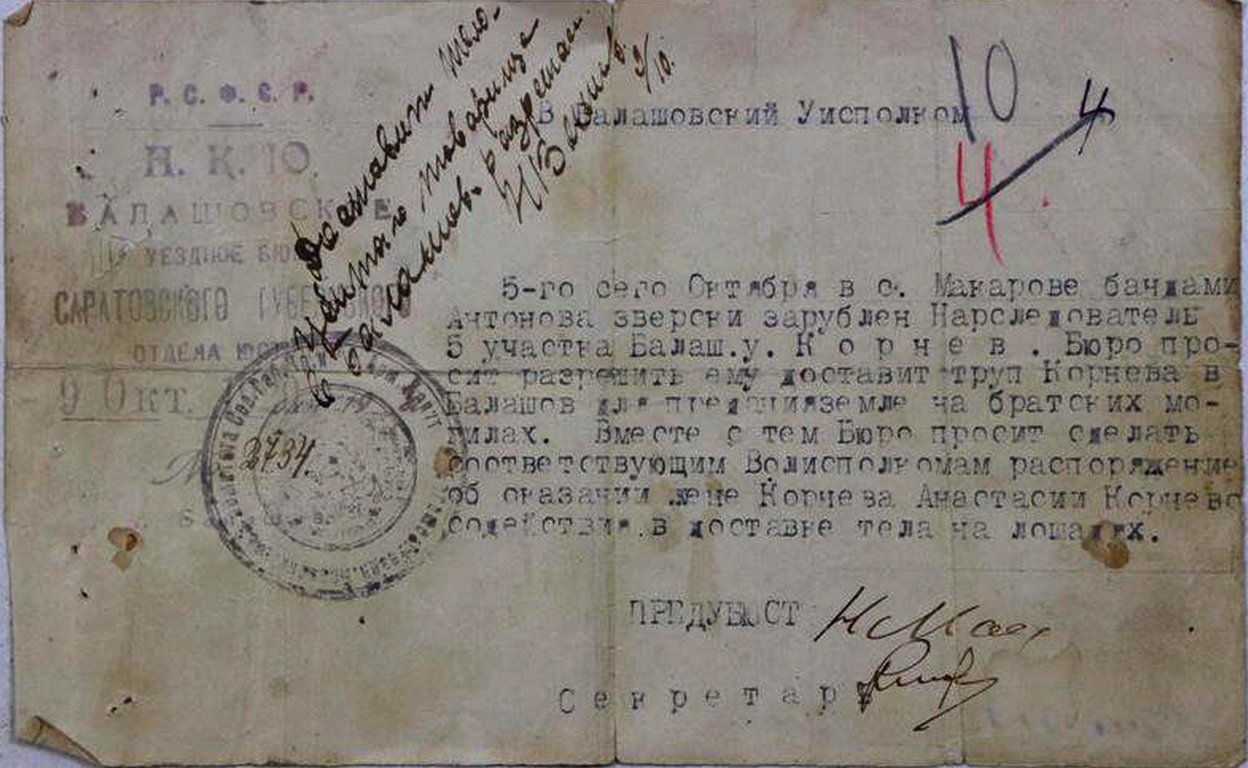 Р. С. Ф. С. Р.
Н. К. Ю.
БАЛАШОВСКОЕ
УЕЗДНОЕ БЮРО
САРАТОВСКОГО ГУБЕРНСКОГО
ОТДЕЛА ЮСТ
9 Окт.
2734.
Доставить тело
убитого товарища
в Балашов. разрешаем.
9/10.
10
4
4
В Балашовский Уисполком
5-го сего Октября в с. Макарове бандами
Антонова зверски зарублен Нарследователь
5 участка Балаш.у. К о р н е в . Бюро про-
сит разрешить ему доставит труп Корнева в
Балашов для преданияземле на братских мо-
гилах. Вместе с тем Бюро просит сделать
соответствующим Волисполкомам распоряжение
об оказании жене Корнева Анастасии Корнево
содействия в доставке тела на лошадях.
ПРЕДУБЮСТ
С е к р е т а р ь